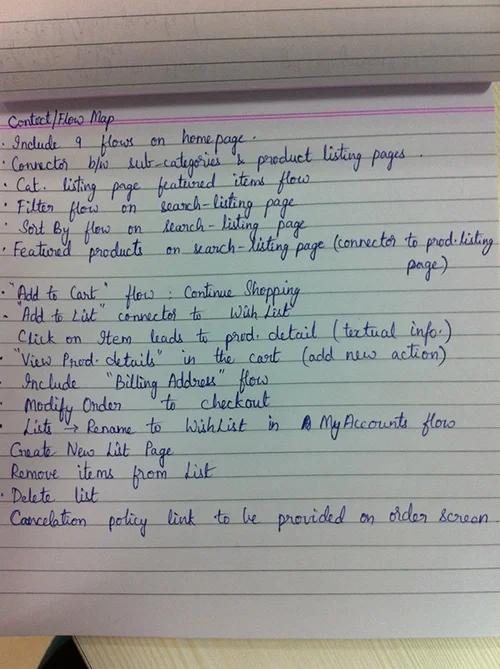 Context/Flow Map
· Include 9 flows on homepage.
· Connector b/w sub-categories & product listing pages.
· Cat. listing page featured items flow
· Filter flow on search-listing page
· Sort By flow on search-listing page
· Featured products on search-listing page (connector to prod. listing
page)
· "Add to Cart" flow : Continue Shopping
- "Add to List" connector to Wish List
Click on Item leads to prod. detail (textual info.)
· "View Prod. details" in the cart (add new action)
· Include "Billing Address" flow
· Modify Order to checkout
· Lists → Rename to WishList in MyAccounts flow
Create New List Page
Remove items from List
· Delete list
Cancelation policy link to be provided on order screen